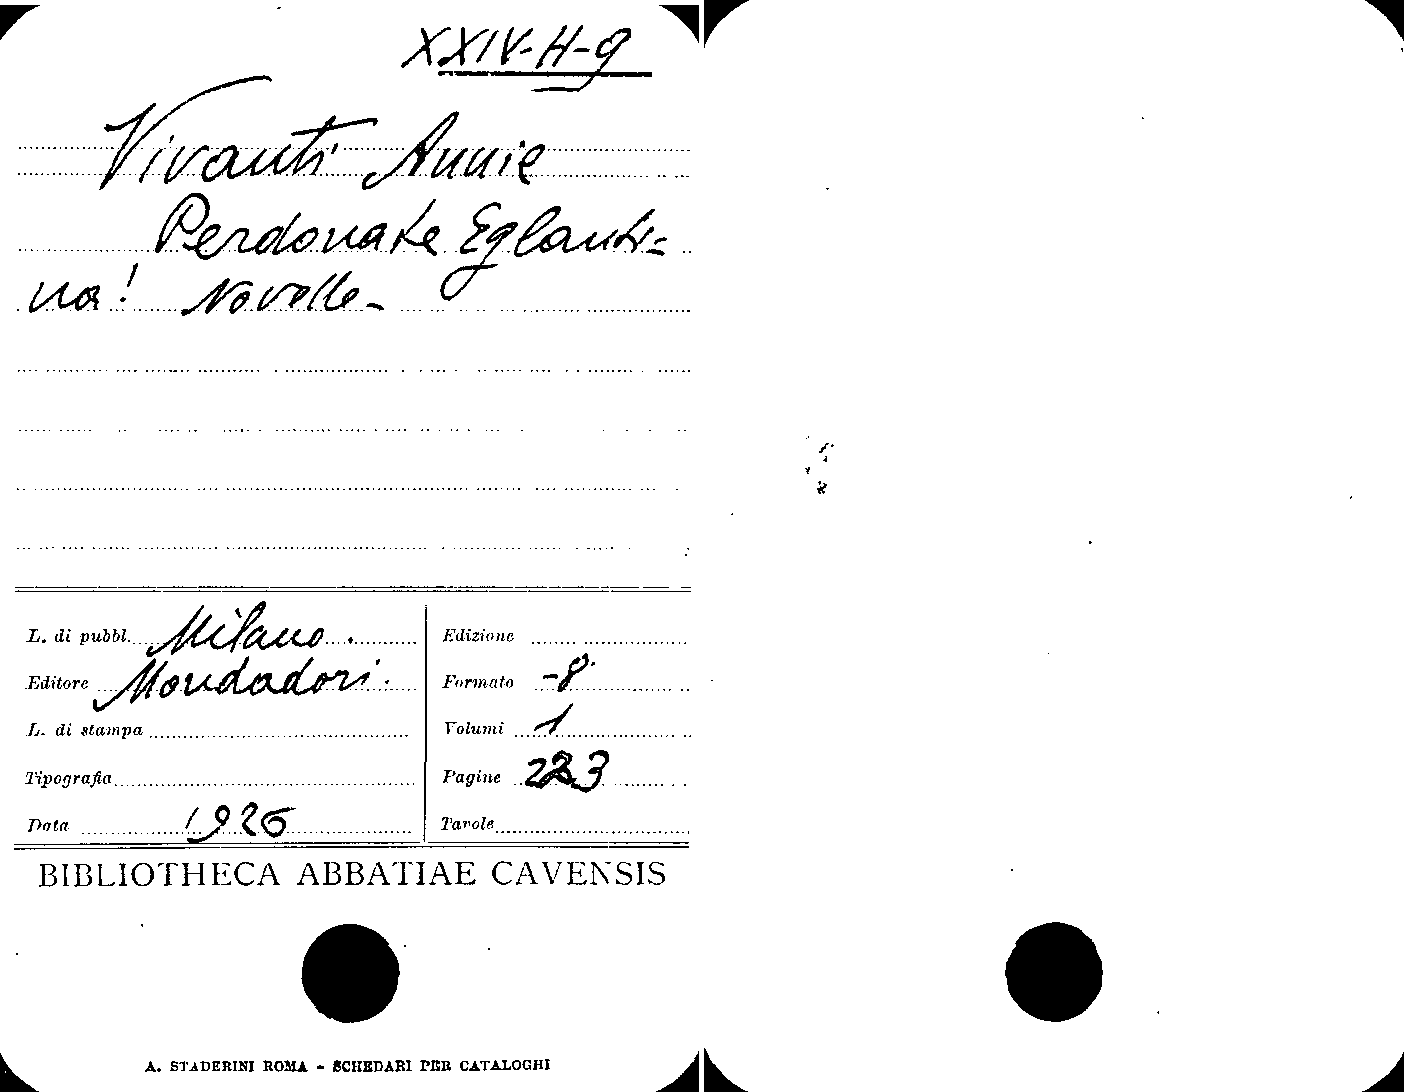 XXIV-H-9
Vivanti Annie
Perdonate Eglanti=
na! Novelle-
L. di pubbl. Milano.
Editore Mondadori.
L. di stampa
Tipografia
Data 1926
Edizione
Formato -8°
Volumi 1
Pagine 223
Tavole
BIBLIOTHECA ABBATIAE CAVENSIS
A. STADERINI ROMA - SCHEDARI PER CATALOGHI